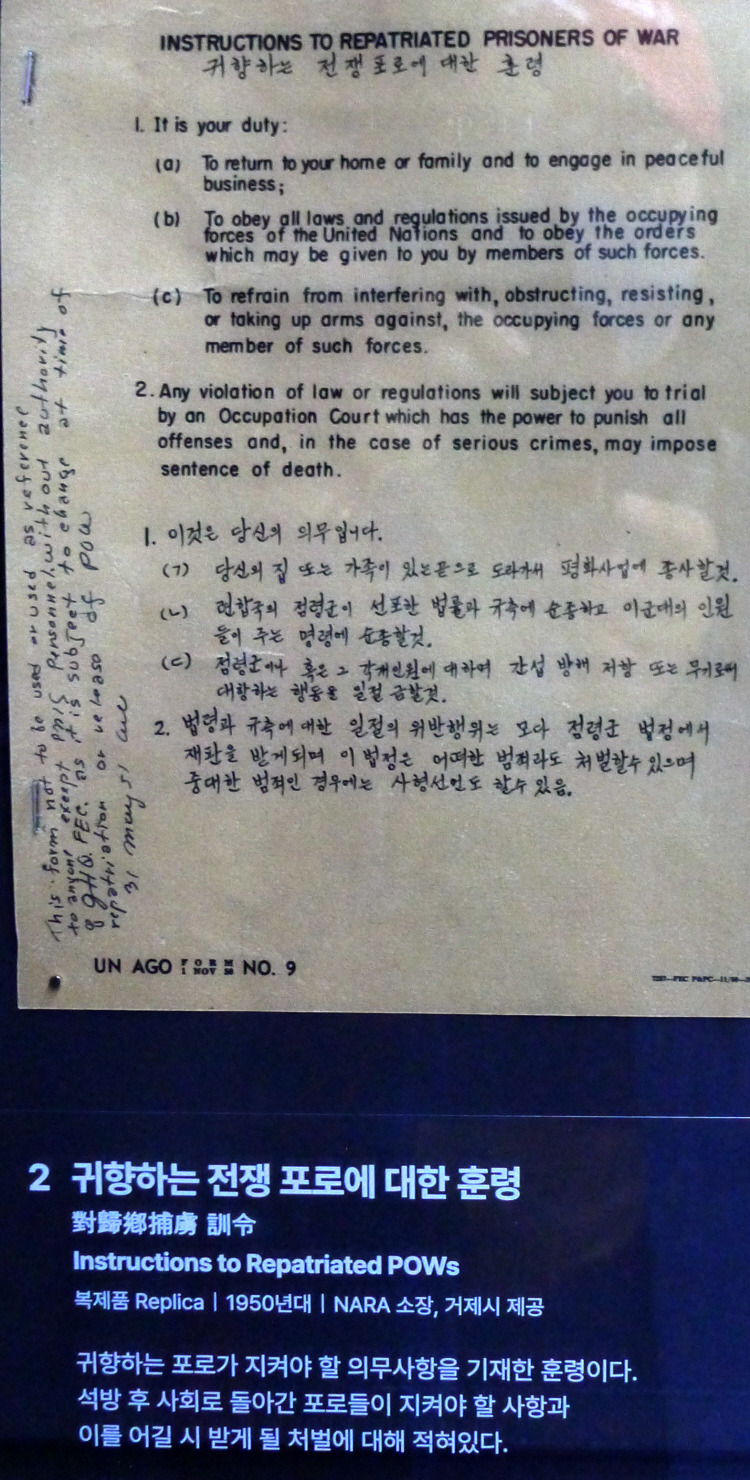 INSTRUCTIONS TO REPATRIATED PRISONERS OF WAR
귀향하는 전쟁포로에 대한 훈령
1. It is your duty:
(a) To return to your home or family and to engage in peaceful
business;
(b) To obey all laws and regulations issued by the occupying
forces of the United Nations and to obey the orders
which may be given to you by members of such forces.
(c) To refrain from interfering with, obstructing, resisting,
or taking up arms against, the occupying forces or any
member of such forces.
2. Any violation of law or regulations will subject you to trial
by an Occupation Court which has the power to punish all
offenses and, in the case of serious crimes, may impose
sentence of death.
1. 이것은 당신의 의무입니다.
(ㄱ) 당신의 집 또는 가족이 있는곧으로 도라가서 평화사업에 종사할것.
(ㄴ) 련합국의 점령군이 선포한 법률과 규측에 순종하고 이군대의 인원
들이 주는 명령에 순종할것.
(ㄷ) 점령군이나 혹은 그 각개인원에 대하여 간섭 방해 저항 또는 무기로써
대항하는 행동을 일절 금할것.
2. 법령과 규측에 대한 일절의 위반행위는 모다 점령군 법정에서
재판을 받게되며 이 법정은 어떠한 범죄라도 처벌할수 있으며
중대한 범죄인 경우에는 사형선언도 할수 있음.
This form not to be used or used as reference
to anyone except SigO personnel, without authority
of GHQ. FEC. since it is subject to change at time of
repatriation or release of POW
31 May 51
UN AGO FORM 1 NOV 50 NO. 9
2 귀향하는 전쟁 포로에 대한 훈령
對歸鄕捕虜 訓令
Instructions to Repatriated POWs
복제품 Replica | 1950년대 | NARA 소장, 거제시 제공
귀향하는 포로가 지켜야 할 의무사항을 기재한 훈령이다.
석방 후 사회로 돌아간 포로들이 지켜야 할 사항과
이를 어길 시 받게 될 처벌에 대해 적혀있다.